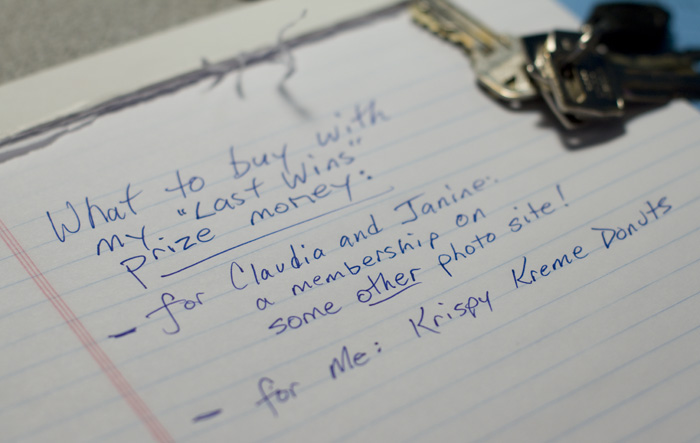 What to buy with
my "Last Wins"
Prize money:
- for Claudia and Janine:
a membership on
some other photo site!
- for Me: Krispy Kreme Donuts